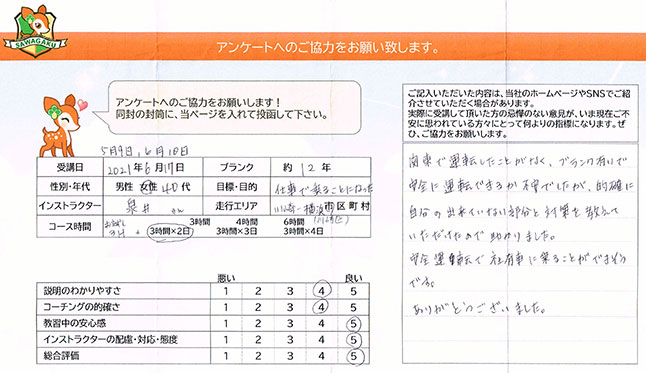 SAWAGAKU
アンケートへのご協力をお願い致します。
アンケートへのご協力をお願いします！
同封の封筒に、当ページを入れて投函して下さい。
5月9日,6月10日
受講日 2021年6月17日 ブランク 約 12年
性別・年代 男性 女性 40代 目標・目的 仕事で乗ることになった
インストラクター 泉井 さん 走行エリア 川崎-横浜 市区町村
コース時間 3時間 4時間 6時間
3時間×2日 3時間×3日 3時間×4日
悪い 良い
説明のわかりやすさ 1 2 3 4 5
コーチングの的確さ 1 2 3 4 5
教習中の安心感 1 2 3 4 5
インストラクターの配慮・対応・態度 1 2 3 4 5
総合評価 1 2 3 4 5
ご記入いただいた内容は、当社のホームページやSNSでご紹介させていただく場合があります。
実際に受講して頂いた方の忌憚のない意見が、いま現在ご不安に思われている方々にとって何よりの指標になります。ぜひ、ご協力をお願いします。
関東で運転したことがなく、ブランク有いで
安全に運転できるか不安でしたが、的確に
自分の出来ていない部分と対策を教えて
いただけたので助かりました。
安全運転で社有車に乗ることができそう
です。
ありがとうございました。